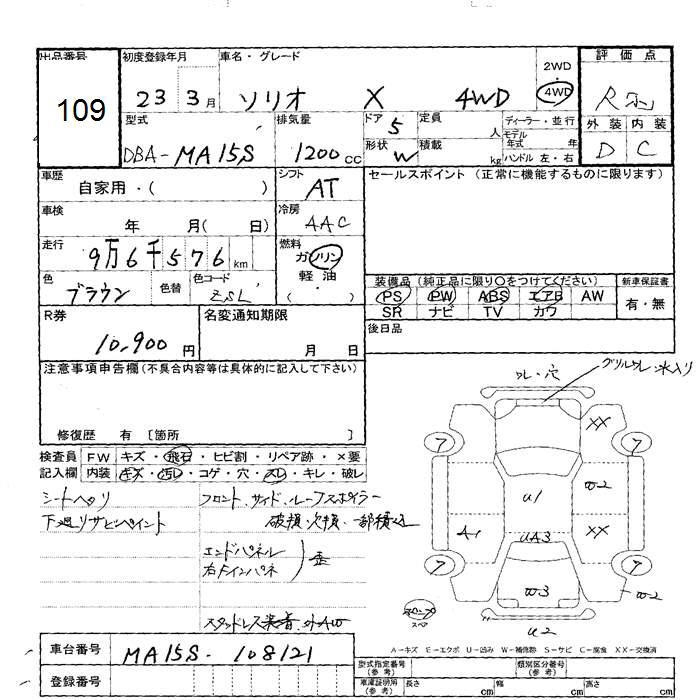 出品番号 初度登録年月 車名・グレード 2WD 4WD 評価点
109 23 3月 ソリオ X 4WD R
型式 排気量 ドア 5 定員 人 ディーラー・並行 外装 内装
モデル年式 年
DBA-MA15S 1200cc 形状 W 積載 kg ハンドル 左・右 D C
車歴 自家用・( ) シフト AT セールスポイント (正常に機能するものに限ります)
車検 年 月( 日) 冷房 AAC
走行 9万6千576km 燃料 ガソリン
軽・油
色 ブラウン 色替 色コード ZSL ( ・ ) 装備品(純正品に限り○をつけてください) 新車保証書
PS PW ABS エアB AW 有・無
SR ナビ TV カワ
R券 10,900円 名変通知期限 月 日 後日品
注意事項申告欄(不具合内容等は具体的に記入して下さい)
修復歴 有 〔箇所 〕
検査員 FW キズ・飛石・ヒビ割・リペア跡・×要
記入欄 内装 キズ・汚レ・コゲ・穴・スレ・キレ・破レ
ワレ・穴 グリルワレ・水入リ
シートヘタリ フロント、サイド、ルーフスポイラー
下廻リサビペイント 破損・欠損・一部積込
エンドパネル
右Fインパネ 歪
スタッドレス装着・外AW
7 XX 7
U1 W2
A1 UA3 XX
7 W3 7 W2
スペア
U2
A-キズ E-エクボ U-凹み W-補修跡 S-サビ C-腐食 XX-交換済
車台番号 MA15S-108121
登録番号
型式指定番号(参考) 類別区分番号(参考)
車庫証明用(参考) 長さ cm 幅 cm 高さ cm